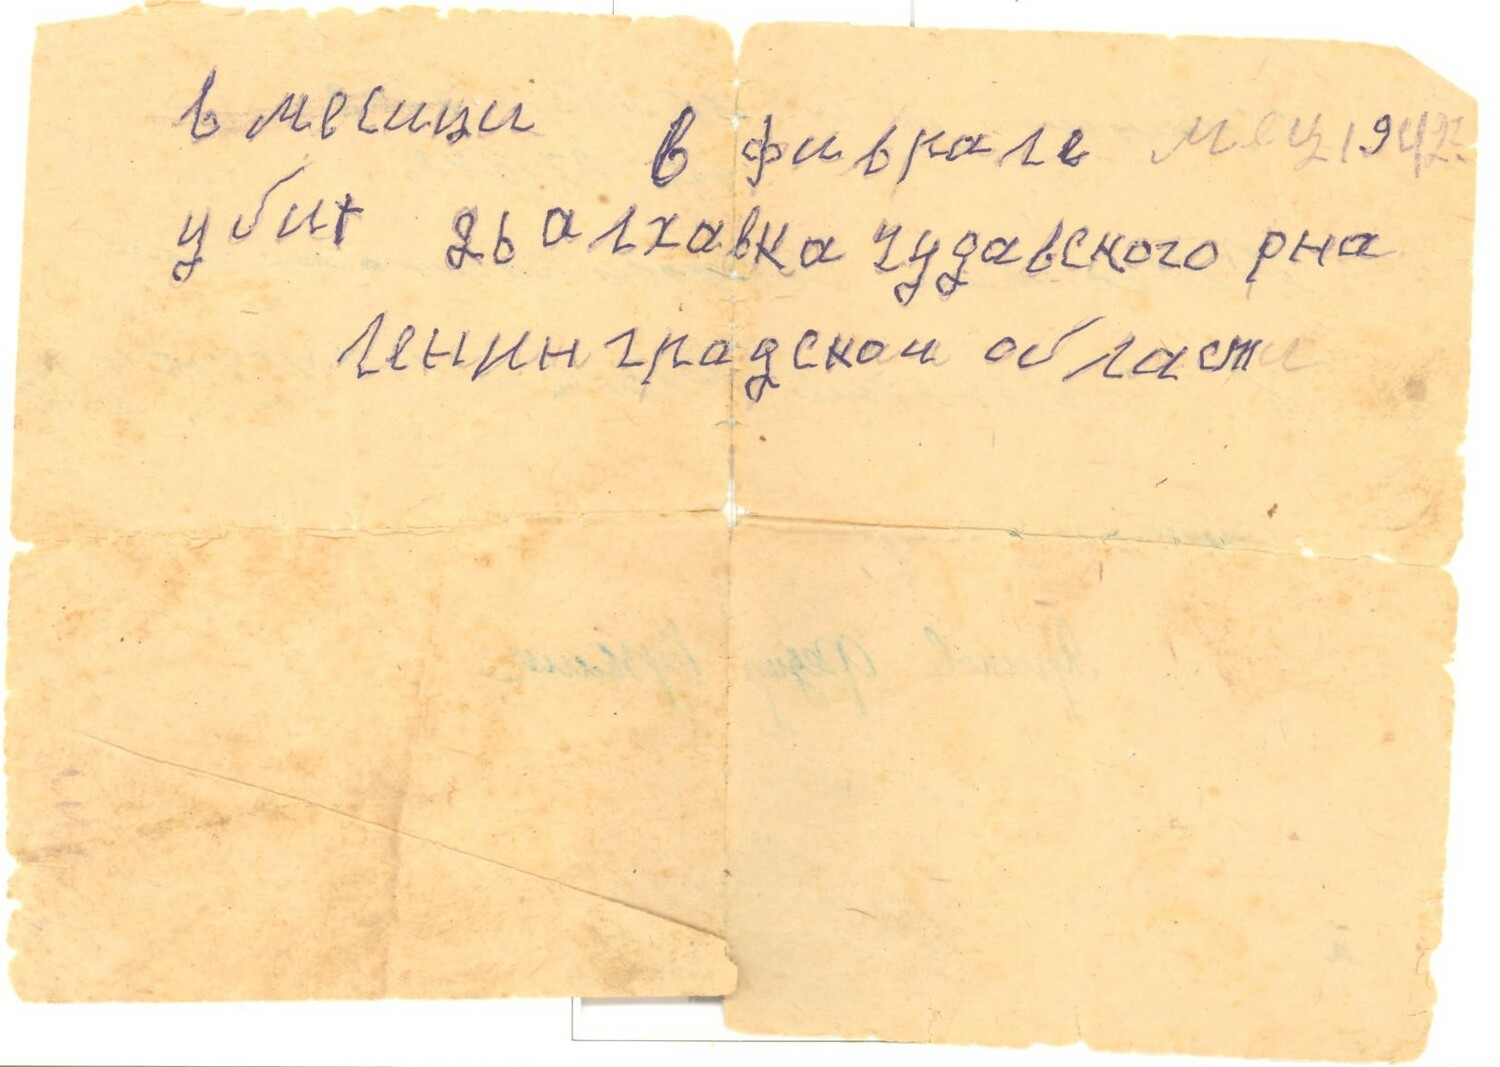 в месици в фиврале мец 1942
убит дь алхавка чудавского рна
ленинградскои области